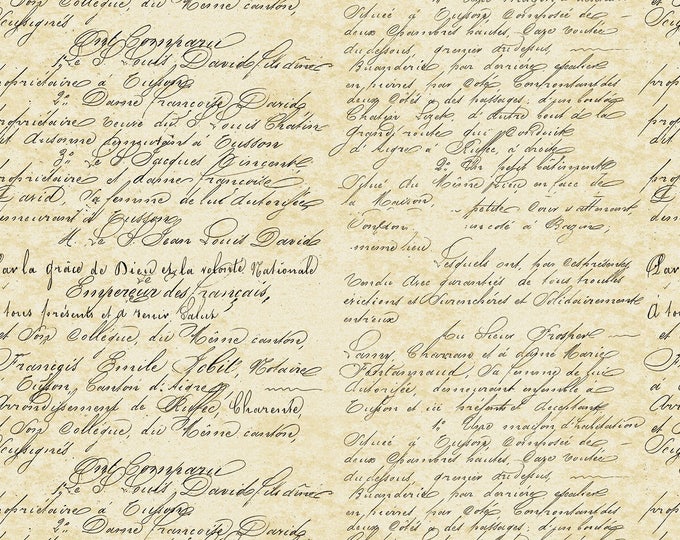 et Son Collègue, du Même canton,
Soussignés
Ont Comparu
1º Le S. Louis David fils aîné
propriétaire à Tusson
2º Dame françoise David
propriétaire Veuve du S. Louis Chatin
et Ausonne demeurant à Tusson
3º Le S. Jacques Vincent
propriétaire et dame francoise
David, Sa femme de lui Autorisée
demeurant à Tusson
4. Le S. Jean Louis David
Par la grâce de Dieu et la volonté Nationale
Empereur des français,
à tous présents et à venir Salut,
et Son Collègue, du Même canton,
François Emile Nobil, Notaire
Tusson, Canton d'Aigre
Arrondissement de Ruffec, Charente,
et Son Collègue, du Même canton,
Soussignés
Ont Comparu
1º Le S. Louis David fils aîné
propriétaire à Tusson
2º Dame françoise David
Située à Tusson Composée de
deux Chambres hautes, Cave voutée
au dessous, grenier au dessus,
Buanderie, par derrière
en pierres, par Côté Confrontant des
deux Cotés a des passages; d'un bout à
Chatin d'Autre bout de la
Grand'route qui Conduit
d'Aigre à Ruffec, à droite
2º Un petit bâtiment
Situé du Même en face de
la Maison, petite Cour y attenant
un coté à
même lieu
Lesquels ont, par ces présentes
Vendu Avec garanties de tous troubles
évictions et Surenchères et Solidairement
entr'eux
Au Sieur Prosper
Lamy Charron et à dame Marie
Sa femme de lui
Autorisée, demeurant ensemble à
Tusson et ici présents et Acceptant
1º Une maison d'habitation
Située à Tusson Composée de
deux Chambres hautes, Cave voutée
au dessous, grenier au dessus,
Buanderie, par derrière
en pierres, par Côté Confrontant des
deux Cotés a des passages; d'un bout à